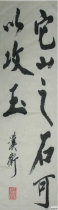 它山之石可
以攻玉